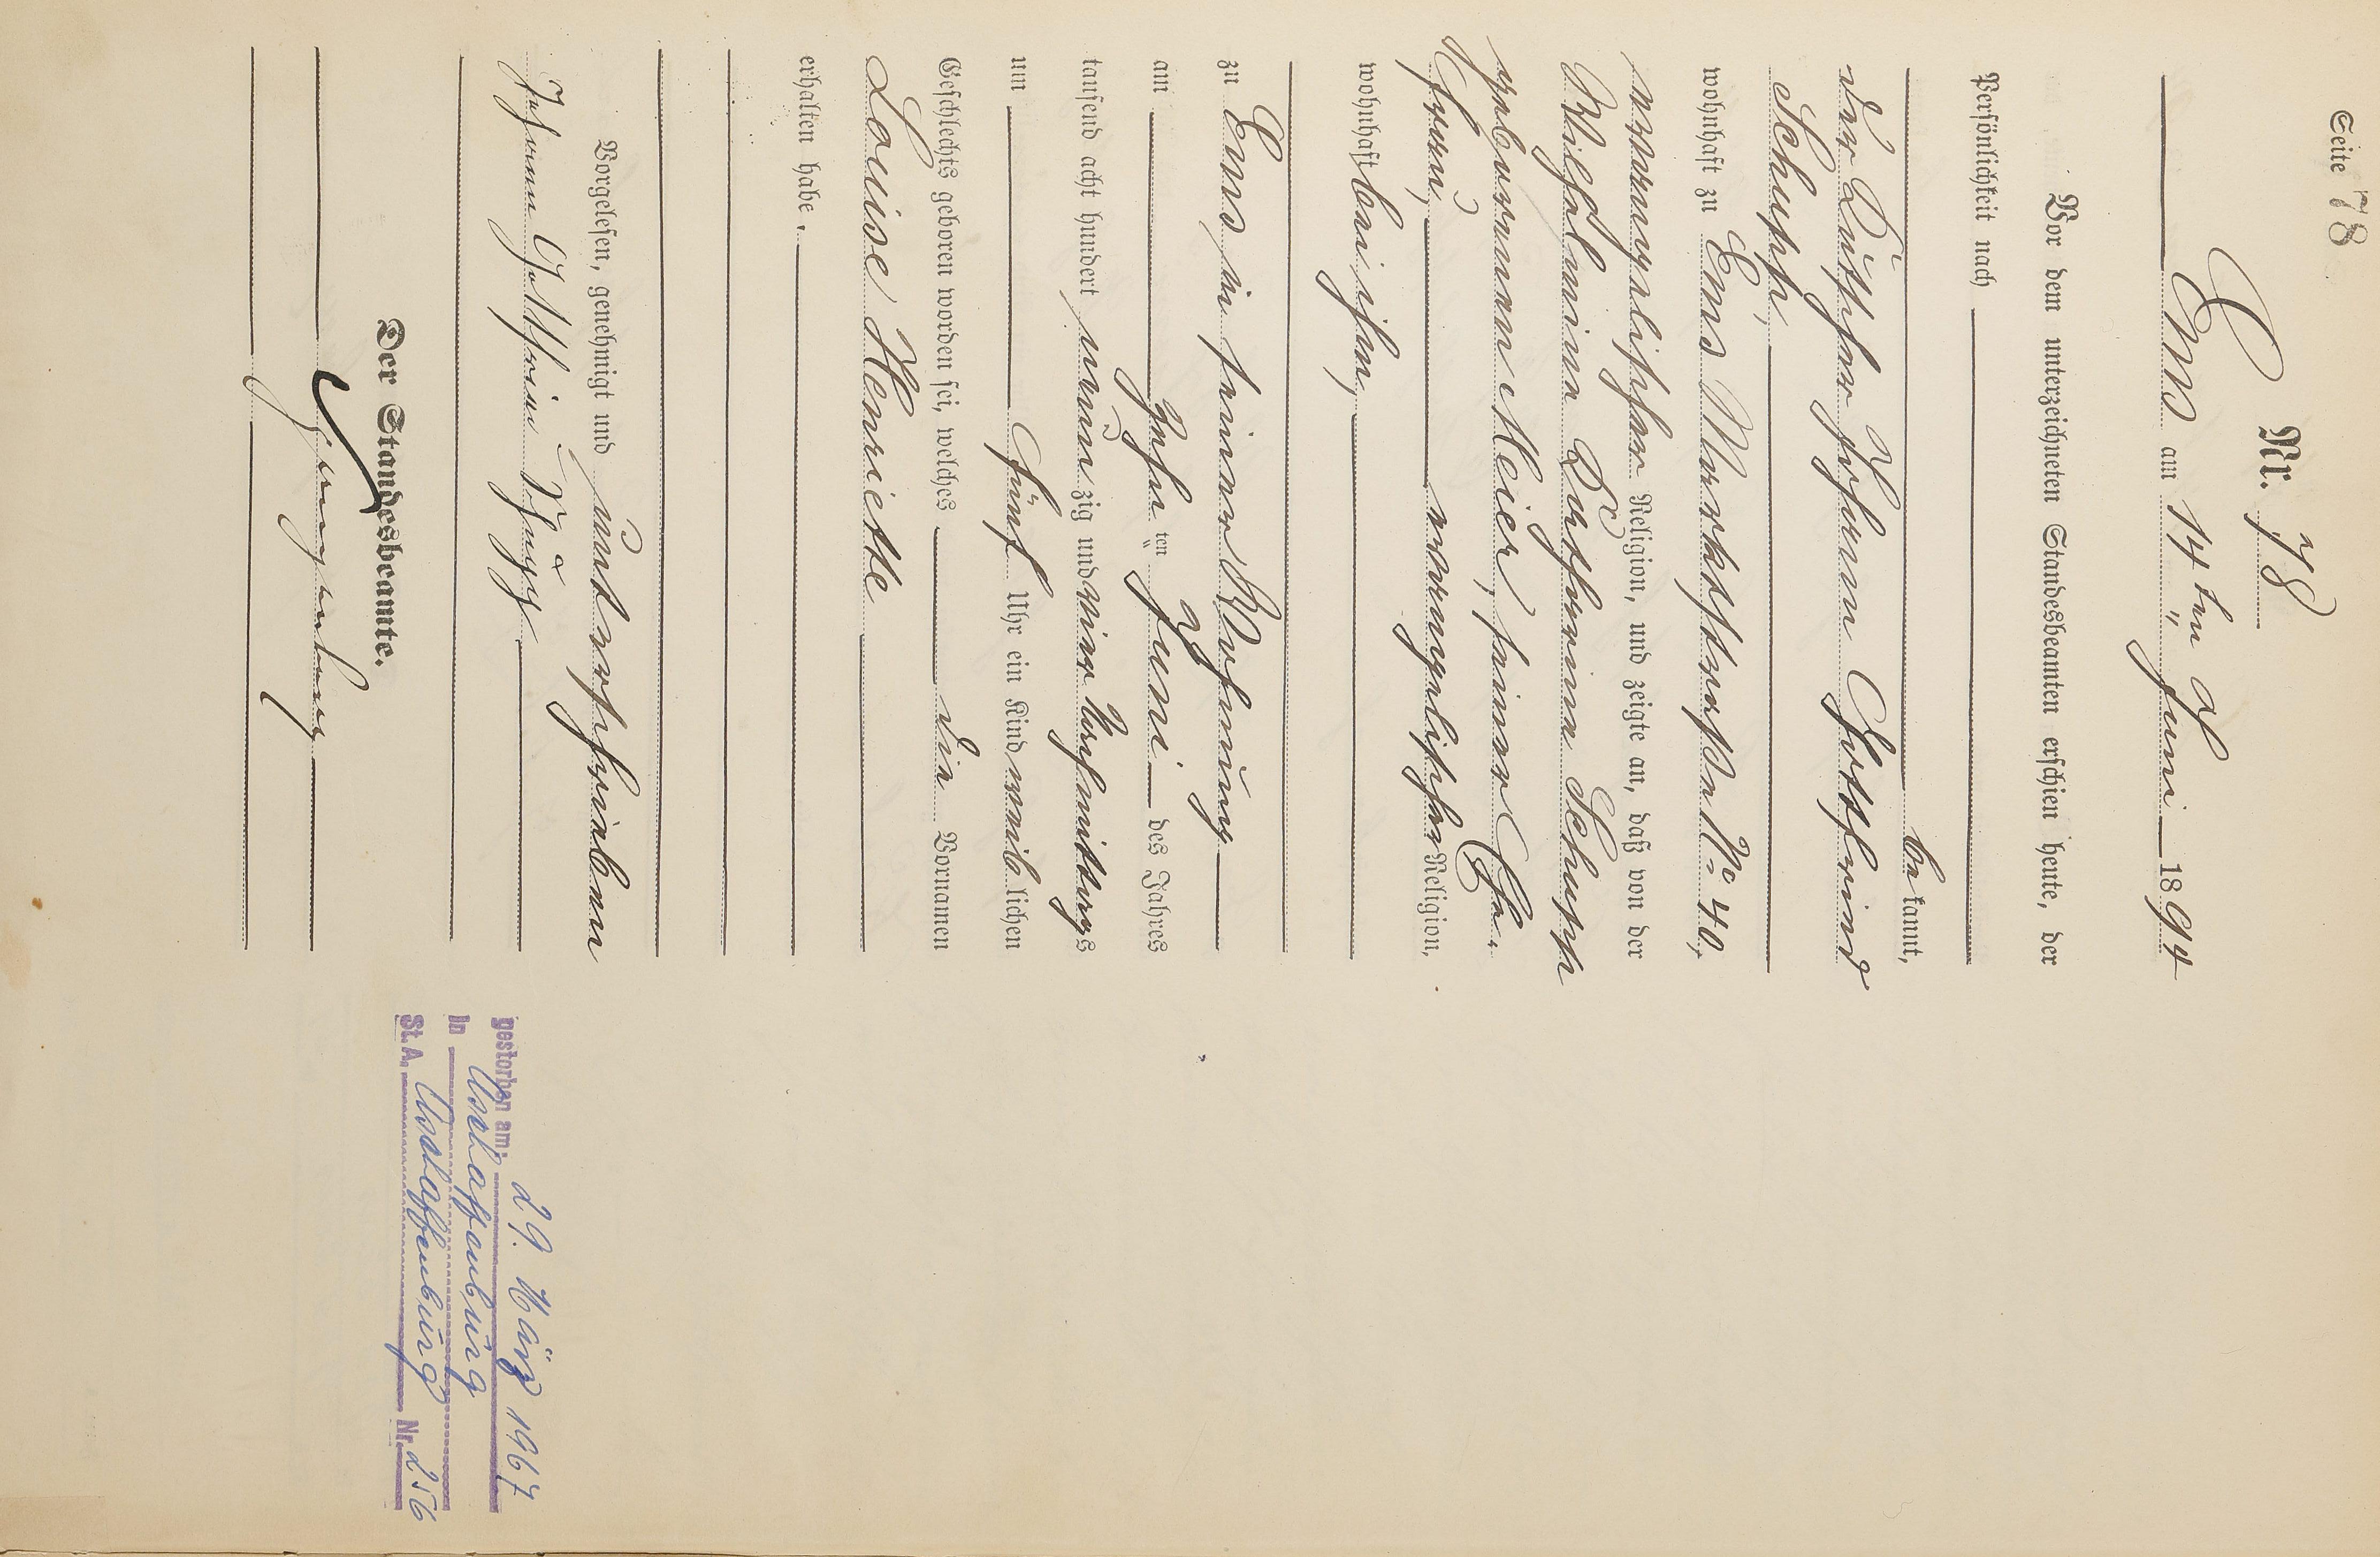 Seite 78
Nr. 78
Ems am 14ten Juni 1894
Vor dem unterzeichneten Standesbeamten erschien heute, der
Persönlichkeit nach
bekannt,
der Küfer Johann Gottfried
Schupp,
wohnhaft zu Ems Marktstraße No 40,
evangelischer Religion, und zeigte an, daß von der
Wilhelmine Katharina Schupp
geborenen Meier, seiner Ehe-
frau,
evangelischer Religion,
wohnhaft bei ihm,
zu Ems in seiner Wohnung
am zehnten Juni des Jahres
tausend acht hundert neunzig und vier Nachmittags
um fünf Uhr ein Kind weiblichen
Geschlechts geboren worden sei, welches die Vornamen
Louise Henriette
erhalten habe.
Vorgelesen, genehmigt und unterschrieben
Johann Gottfried Schupp
Der Standesbeamte.
gestorben am: 29. März 1967
in Aschaffenburg
St. A. Aschaffenburg Nr. 256